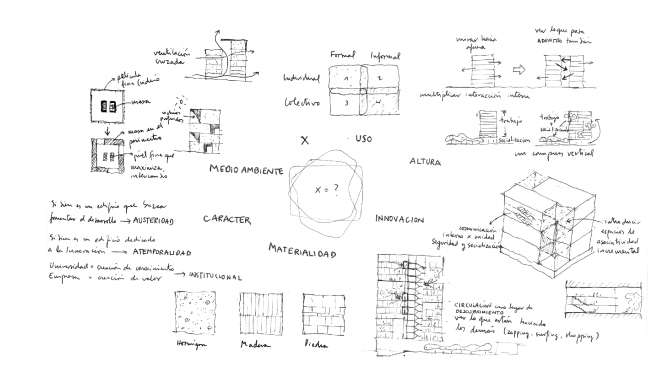 ventilación
cruzada
película
fina (vidrio)
masa
masa en el
perímetro
piel fina que
maximiza
intercambio
vidrios
profundos
Formal Informal
Individual
Colectivo
1 2
3 4
X USO
mirar hacia
afuera
ver lo que pasa
ADENTRO también
multiplicar interacción interna
trabajo
socialización
trabajo
un campus vertical
MEDIO AMBIENTE
ALTURA
X = ?
CARACTER
INNOVACION
MATERIALIDAD
Si bien es un edificio que busca
fomentar el desarrollo → AUSTERIDAD
Si bien es un edificio dedicado
a la Innovación → ATEMPORALIDAD
Universidad = creación de conocimiento
Empresa = creación de valor → INSTITUCIONAL
comunicación
interna x unidad
Seguridad y socialización
introducir
espacios de
asociatividad
incremental
CIRCULACION como lugar de
DESCUBRIMIENTO
ver lo que están haciendo
los demás (zapping, surfing, shopping)
Hormigón Madera Piedra